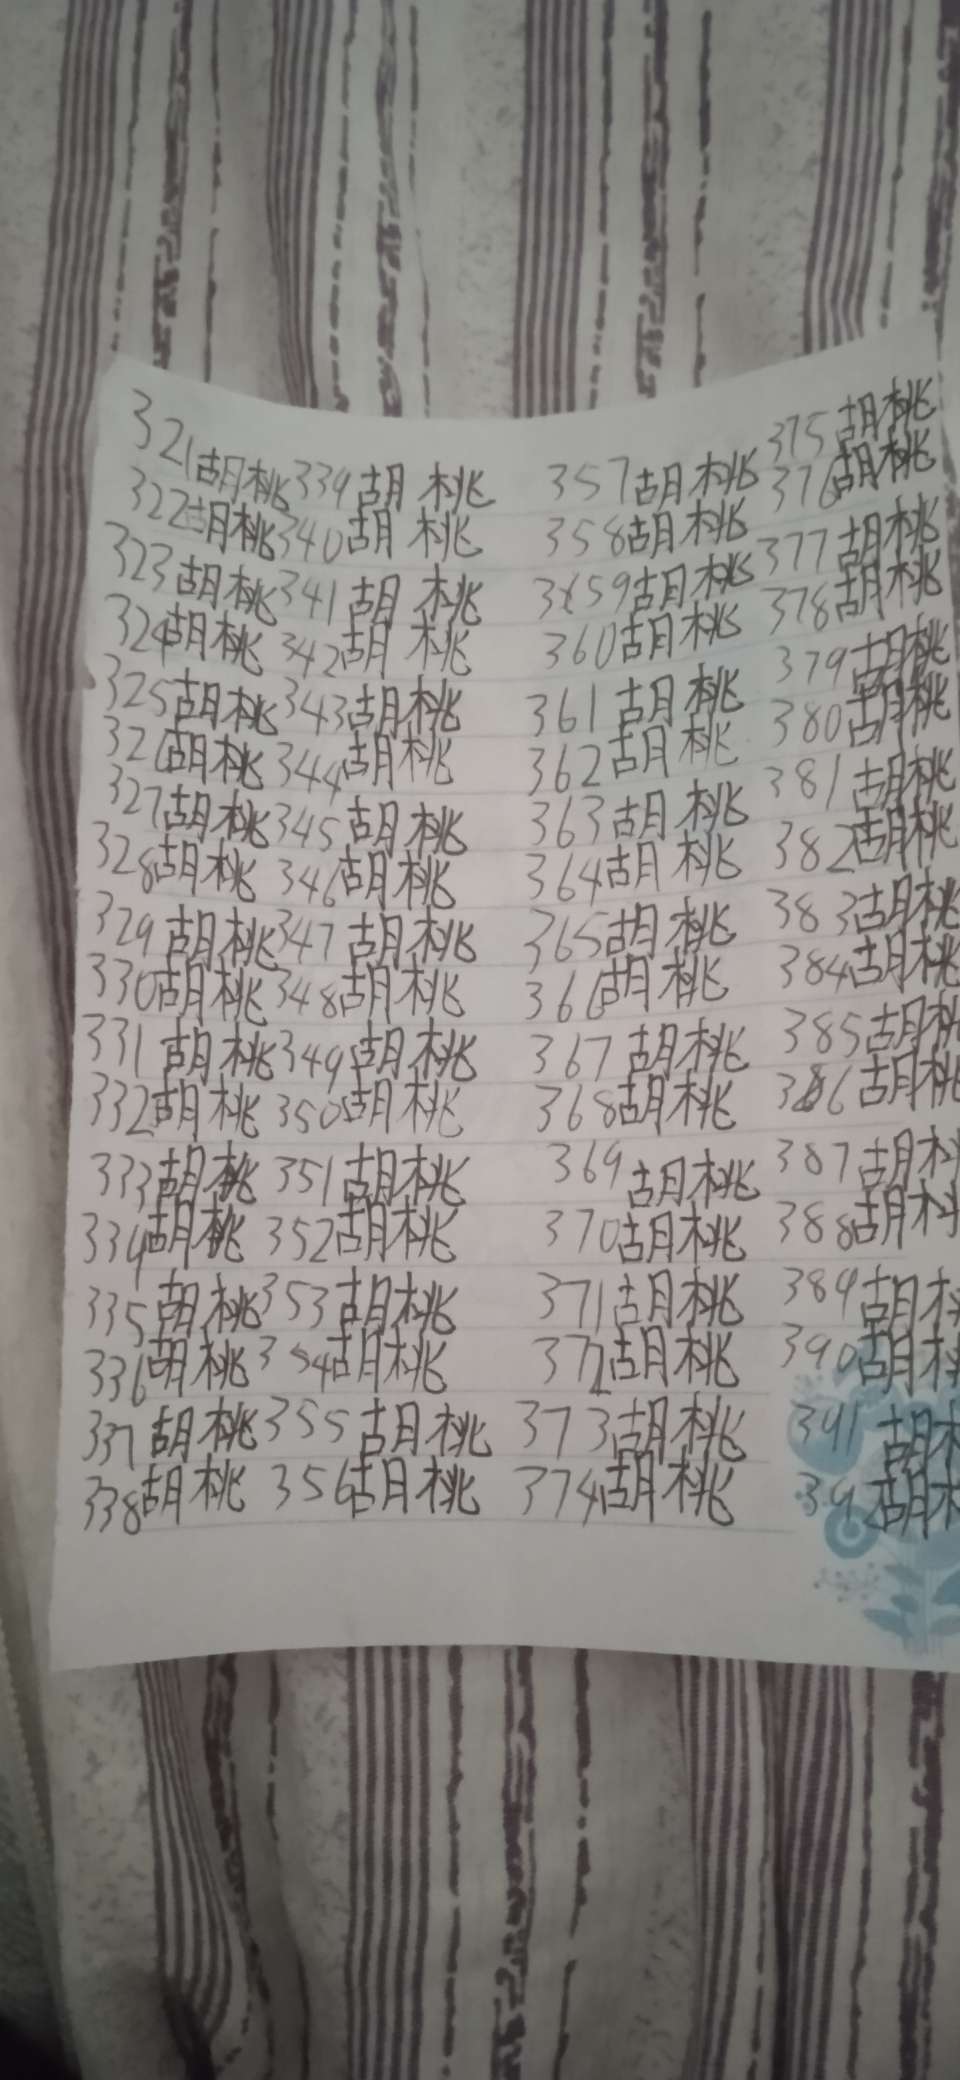 321胡桃
322胡桃
323胡桃
324胡桃
325胡桃
326胡桃
327胡桃
328胡桃
329胡桃
330胡桃
331胡桃
332胡桃
333胡桃
334胡桃
335胡桃
336胡桃
337胡桃
338胡桃
339胡桃
340胡桃
341胡桃
342胡桃
343胡桃
344胡桃
345胡桃
346胡桃
347胡桃
348胡桃
349胡桃
350胡桃
351胡桃
352胡桃
353胡桃
354胡桃
355胡桃
356胡桃
357胡桃
358胡桃
359胡桃
360胡桃
361胡桃
362胡桃
363胡桃
364胡桃
365胡桃
366胡桃
367胡桃
368胡桃
369胡桃
370胡桃
371胡桃
372胡桃
373胡桃
374胡桃
375胡桃
376胡桃
377胡桃
378胡桃
379胡桃
380胡桃
381胡桃
382胡桃
383胡桃
384胡桃
385胡桃
386胡桃
387胡
388胡
389胡
390胡
391胡
392胡